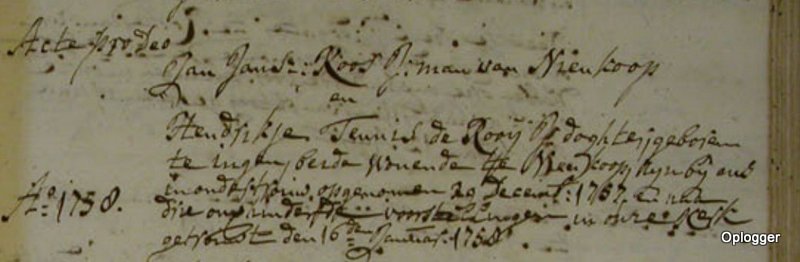 Acte pro deo
Jan Jansz: Roos J: man van Nieukoop
en
Hendrikje Teunis de Rooij J: doghter, gebooren
te ingen, beide wonende te Nieukoop, zyn bij ons
in ondertrouw opgenomen 29 Decemb: 1757, en na
drie onverhinderde voorstellingen in onze Kerk
Ao. 1758.
getrouwt den 16de Januar: 1758
Oplogger